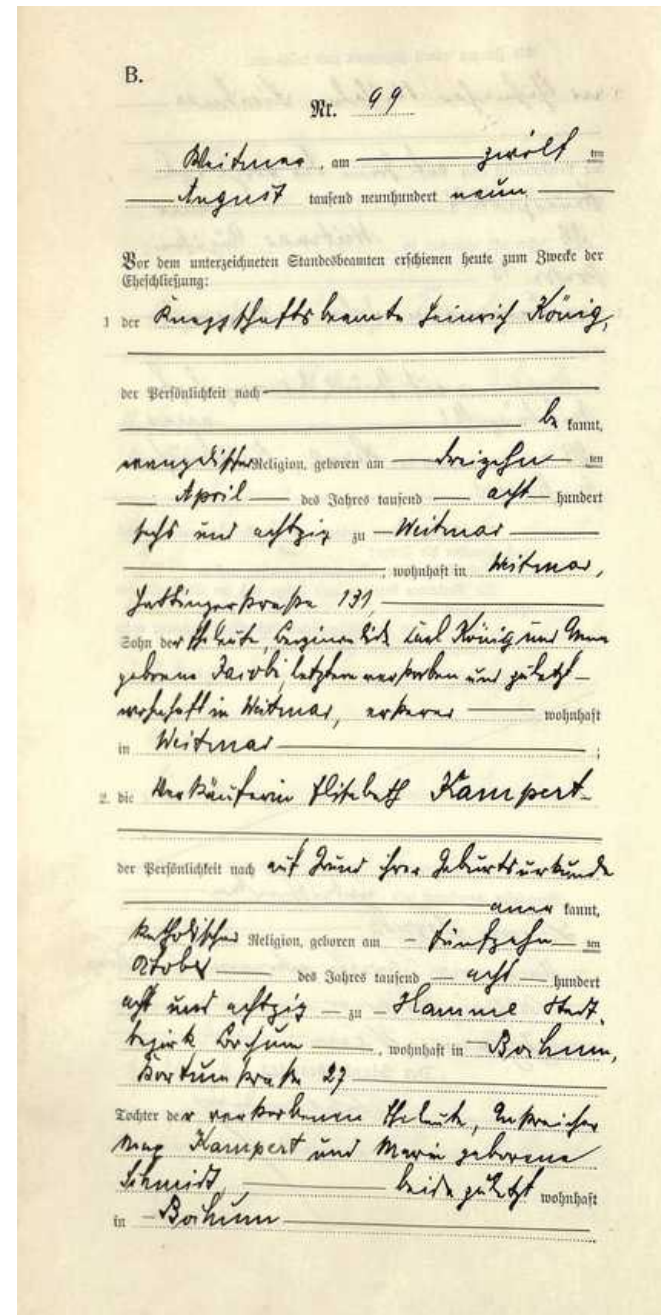 B.
Nr. 99
Weitmar, am zwölf ten
August tausend neunhundert neun
Vor dem unterzeichneten Standesbeamten erschienen heute zum Zwecke der
Eheschließung:
1. der Knappschaftsbeamte Heinrich König,
der Persönlichkeit nach
be kannt,
evangelischer Religion, geboren am dreizehn ten
April des Jahres tausend acht hundert
sechs und achtzig zu Weitmar
; wohnhaft in Weitmar,
Hattingerstraße 131,
Sohn der Eheleute, Karl König und Anna
geborene Jacobi, letztere verstorben und zuletzt
wohnhaft in Weitmar, ersterer wohnhaft
in Weitmar ;
2. die Verkäuferin Elisabeth Kampert
der Persönlichkeit nach auf Grund ihrer Geburtsurkunde
aner kannt,
katholischer Religion, geboren am fünfzehn ten
Oktober des Jahres tausend acht hundert
acht und achtzig zu Hamme Stadt-
bezirk Bochum, wohnhaft in Bochum,
Kortumstraße 27
Tochter der verstorbenen Eheleute, Anstreicher
Max Kampert und Maria geborene
Schmidt, beide zuletzt wohnhaft
in Bochum